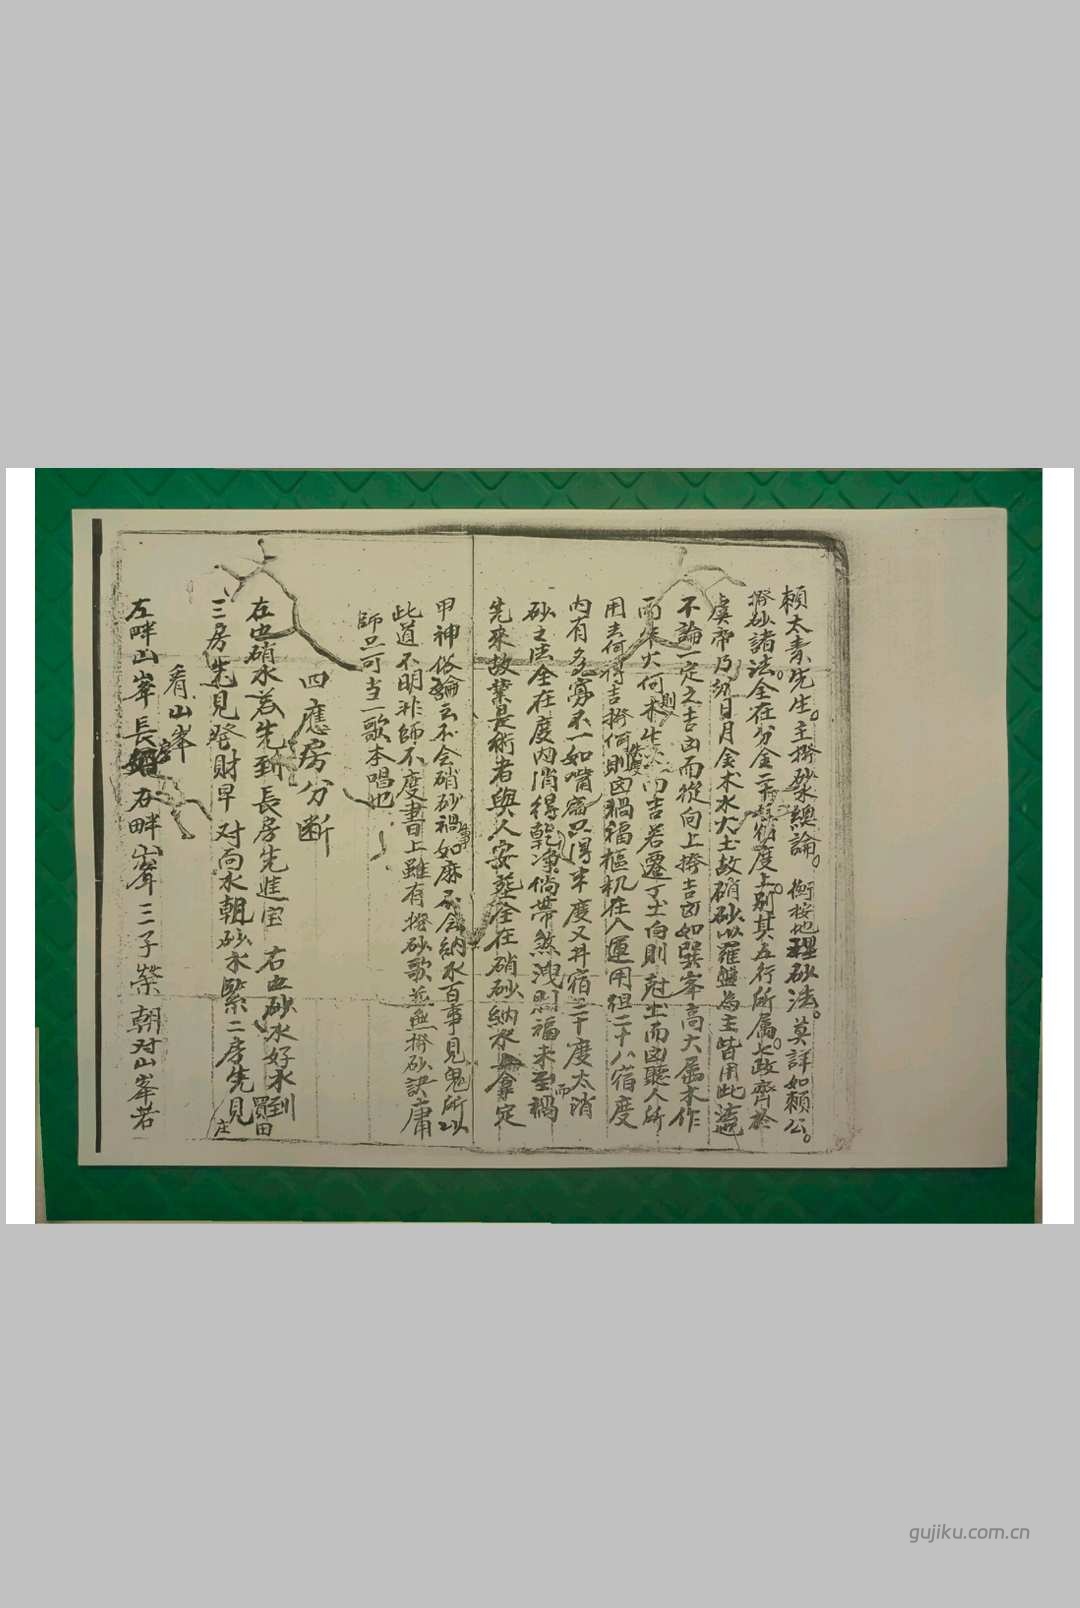 賴太素先生。主撥砂總論。衡按地理砂法。莫詳如賴公。
撥砂諸法。全在分金二十宿度上。別其五行所属。七政齊於
虞帝乃初日月金木水火土故硝砂以羅盤為主皆用此
不論一定之吉凶而從向上撥吉凶如巽峯高大属木作
向則尅土而凶聽人所
用去何得吉撥何則凶禍福樞机在人運用組二十八宿度
内有多寡不一如嘴宿只得半度又井宿三十度太消
砂之法全在度内消得乾净倘帶煞洩則福未至而禍
先來故業是術者與人安塟全在硝砂納水拿定
甲神俗論云不会硝砂禍如麻不会納水百事見鬼所以
此道不明非師不度書曰上雖有撥砂歌並無撥砂訣庸
師只可当一歌本唱也
四應房分断
左边硝水若先到長房先進宝 右边砂水好水到買田
三房先見發財早 对向水朝砂水緊二房先見庄
看山峯
左畔山峯長 右畔山峯三子榮朝对山峯若
gujiku.com.cn